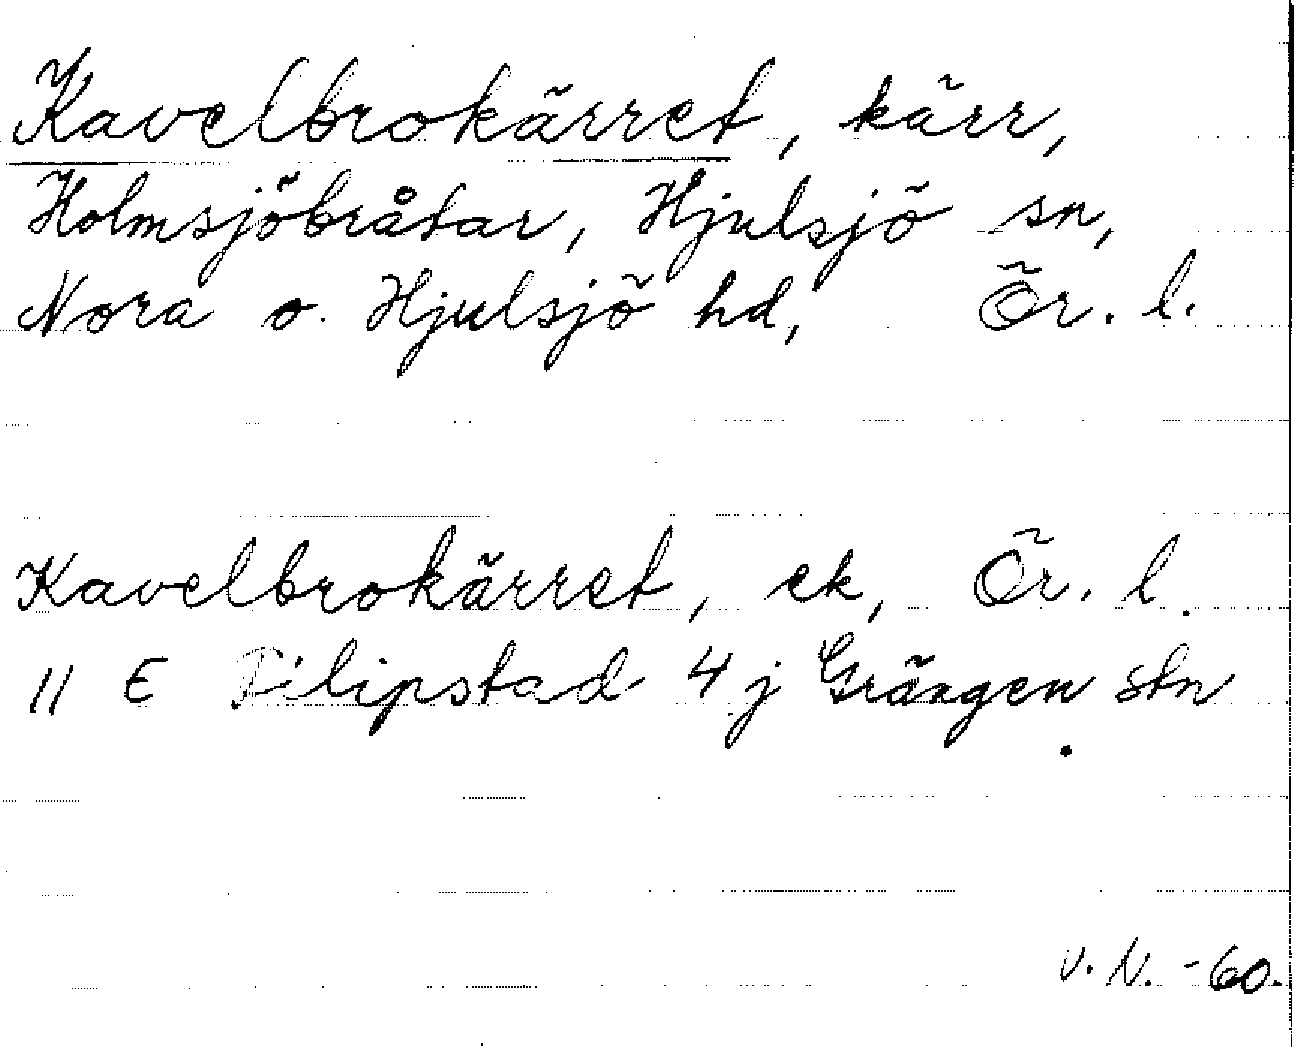 Kavelbrokärret, kärr,
Holmsjöbråtar, Hjulsjö sn,
Nora o. Hjulsjö hd, Ör. l.
Kavelbrokärret, ek, Ör. l.
11 E Filipstad 4 j Grängen stn
v. N. -60.